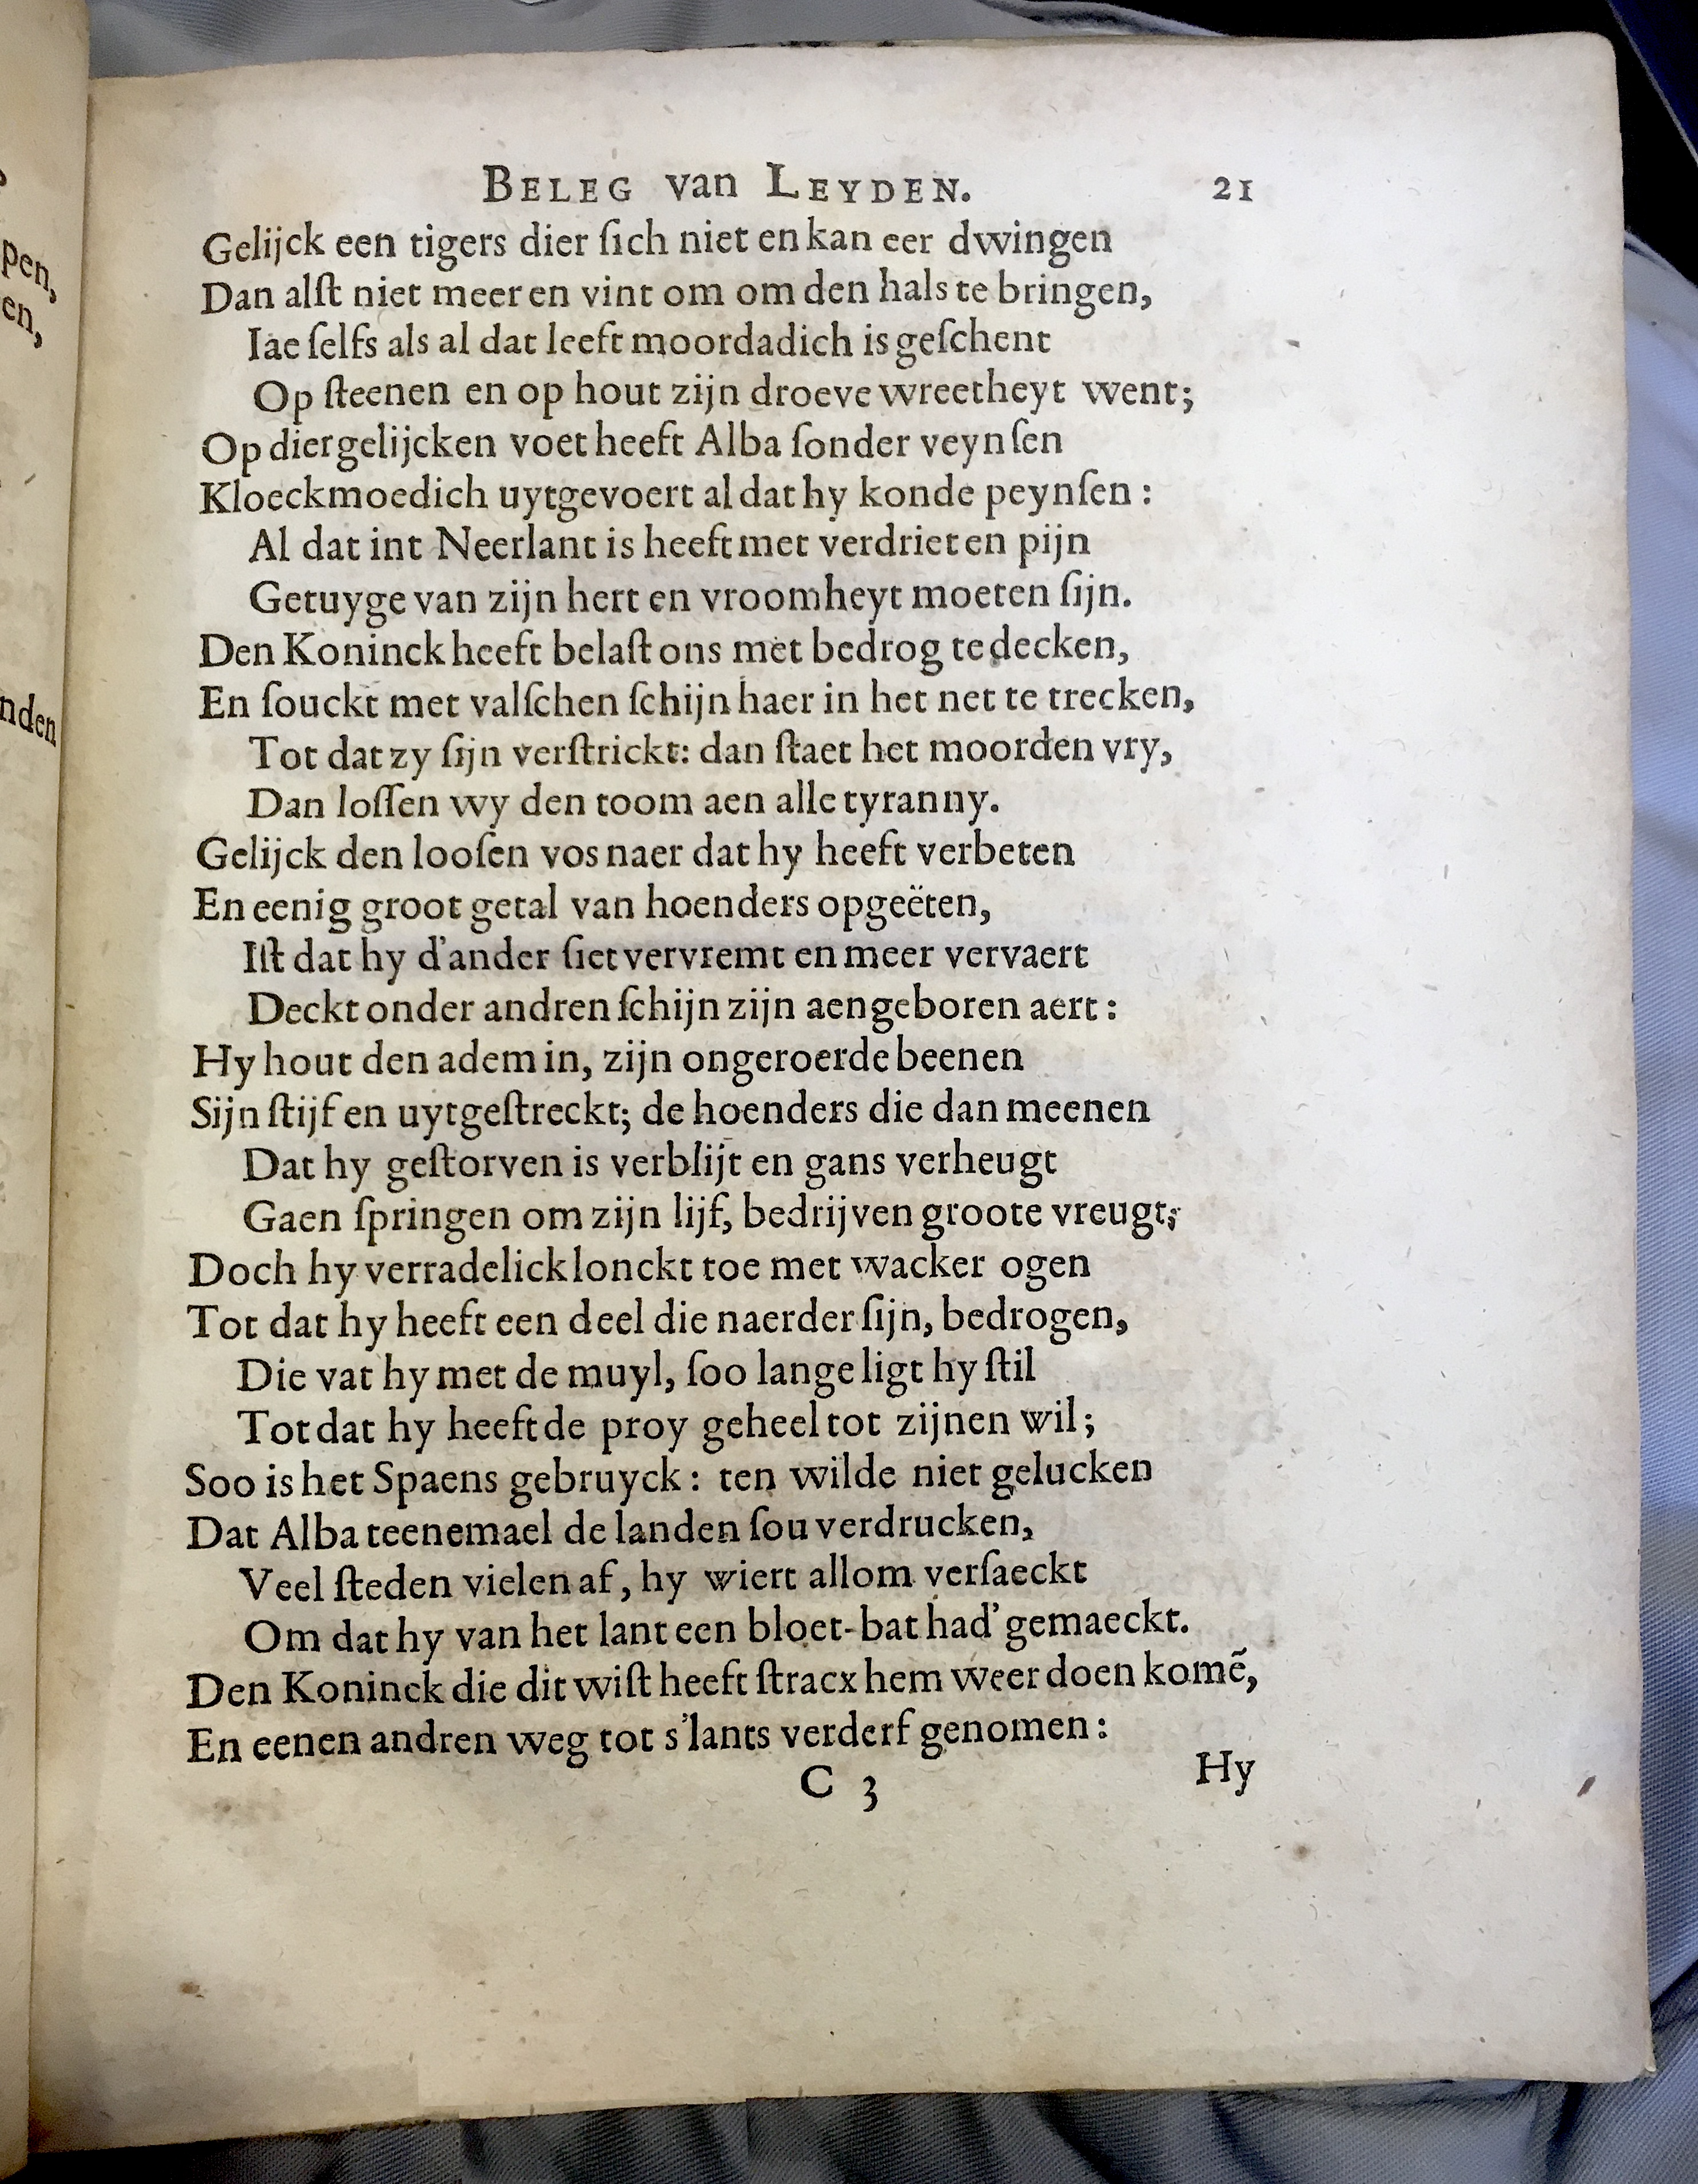 BELEG van LEYDEN. 21
Gelijck een tigers dier ſich niet en kan eer dwingen
Dan alſt niet meer en vint om om den hals te bringen,
Iae ſelfs als al dat leeft moordadich is geſchent
Op ſteenen en op hout zijn droeve wreetheyt went;
Op diergelijcken voet heeft Alba ſonder veynſen
Kloeckmoedich uytgevoert al dat hy konde peynſen:
Al dat int Neerlant is heeft met verdriet en pijn
Getuyge van zijn hert en vroomheyt moeten ſijn.
Den Koninck heeft belaſt ons met bedrog te decken,
En ſouckt met valſchen ſchijn haer in het net te trecken,
Tot dat zy ſijn verſtrickt: dan ſtaet het moorden vry,
Dan loſſen wy den toom aen alle tyranny.
Gelijck den looſen vos naer dat hy heeft verbeten
En eenig groot getal van hoenders opgeëten,
Iſt dat hy d'ander ſiet vervremt en meer vervaert
Deckt onder andren ſchijn zijn aengeboren aert:
Hy hout den adem in, zijn ongeroerde beenen
Sijn ſtijf en uytgeſtreckt; de hoenders die dan meenen
Dat hy geſtorven is verblijt en gans verheugt
Gaen ſpringen om zijn lijf, bedrijven groote vreugt;
Doch hy verradelick lonckt toe met wacker ogen
Tot dat hy heeft een deel die naerder ſijn, bedrogen,
Die vat hy met de muyl, ſoo lange ligt hy ſtil
Tot dat hy heeft de proy geheel tot zijnen wil;
Soo is het Spaens gebruyck: ten wilde niet gelucken
Dat Alba teenemael de landen ſou verdrucken,
Veel ſteden vielen af, hy wiert allom verſaeckt
Om dat hy van het lant een bloet-bat had' gemaeckt.
Den Koninck die dit wiſt heeft ſtracx hem weer doen komẽ,
En eenen andren weg tot s'lants verderf genomen:
C 3 Hy
pen,
en,
nden